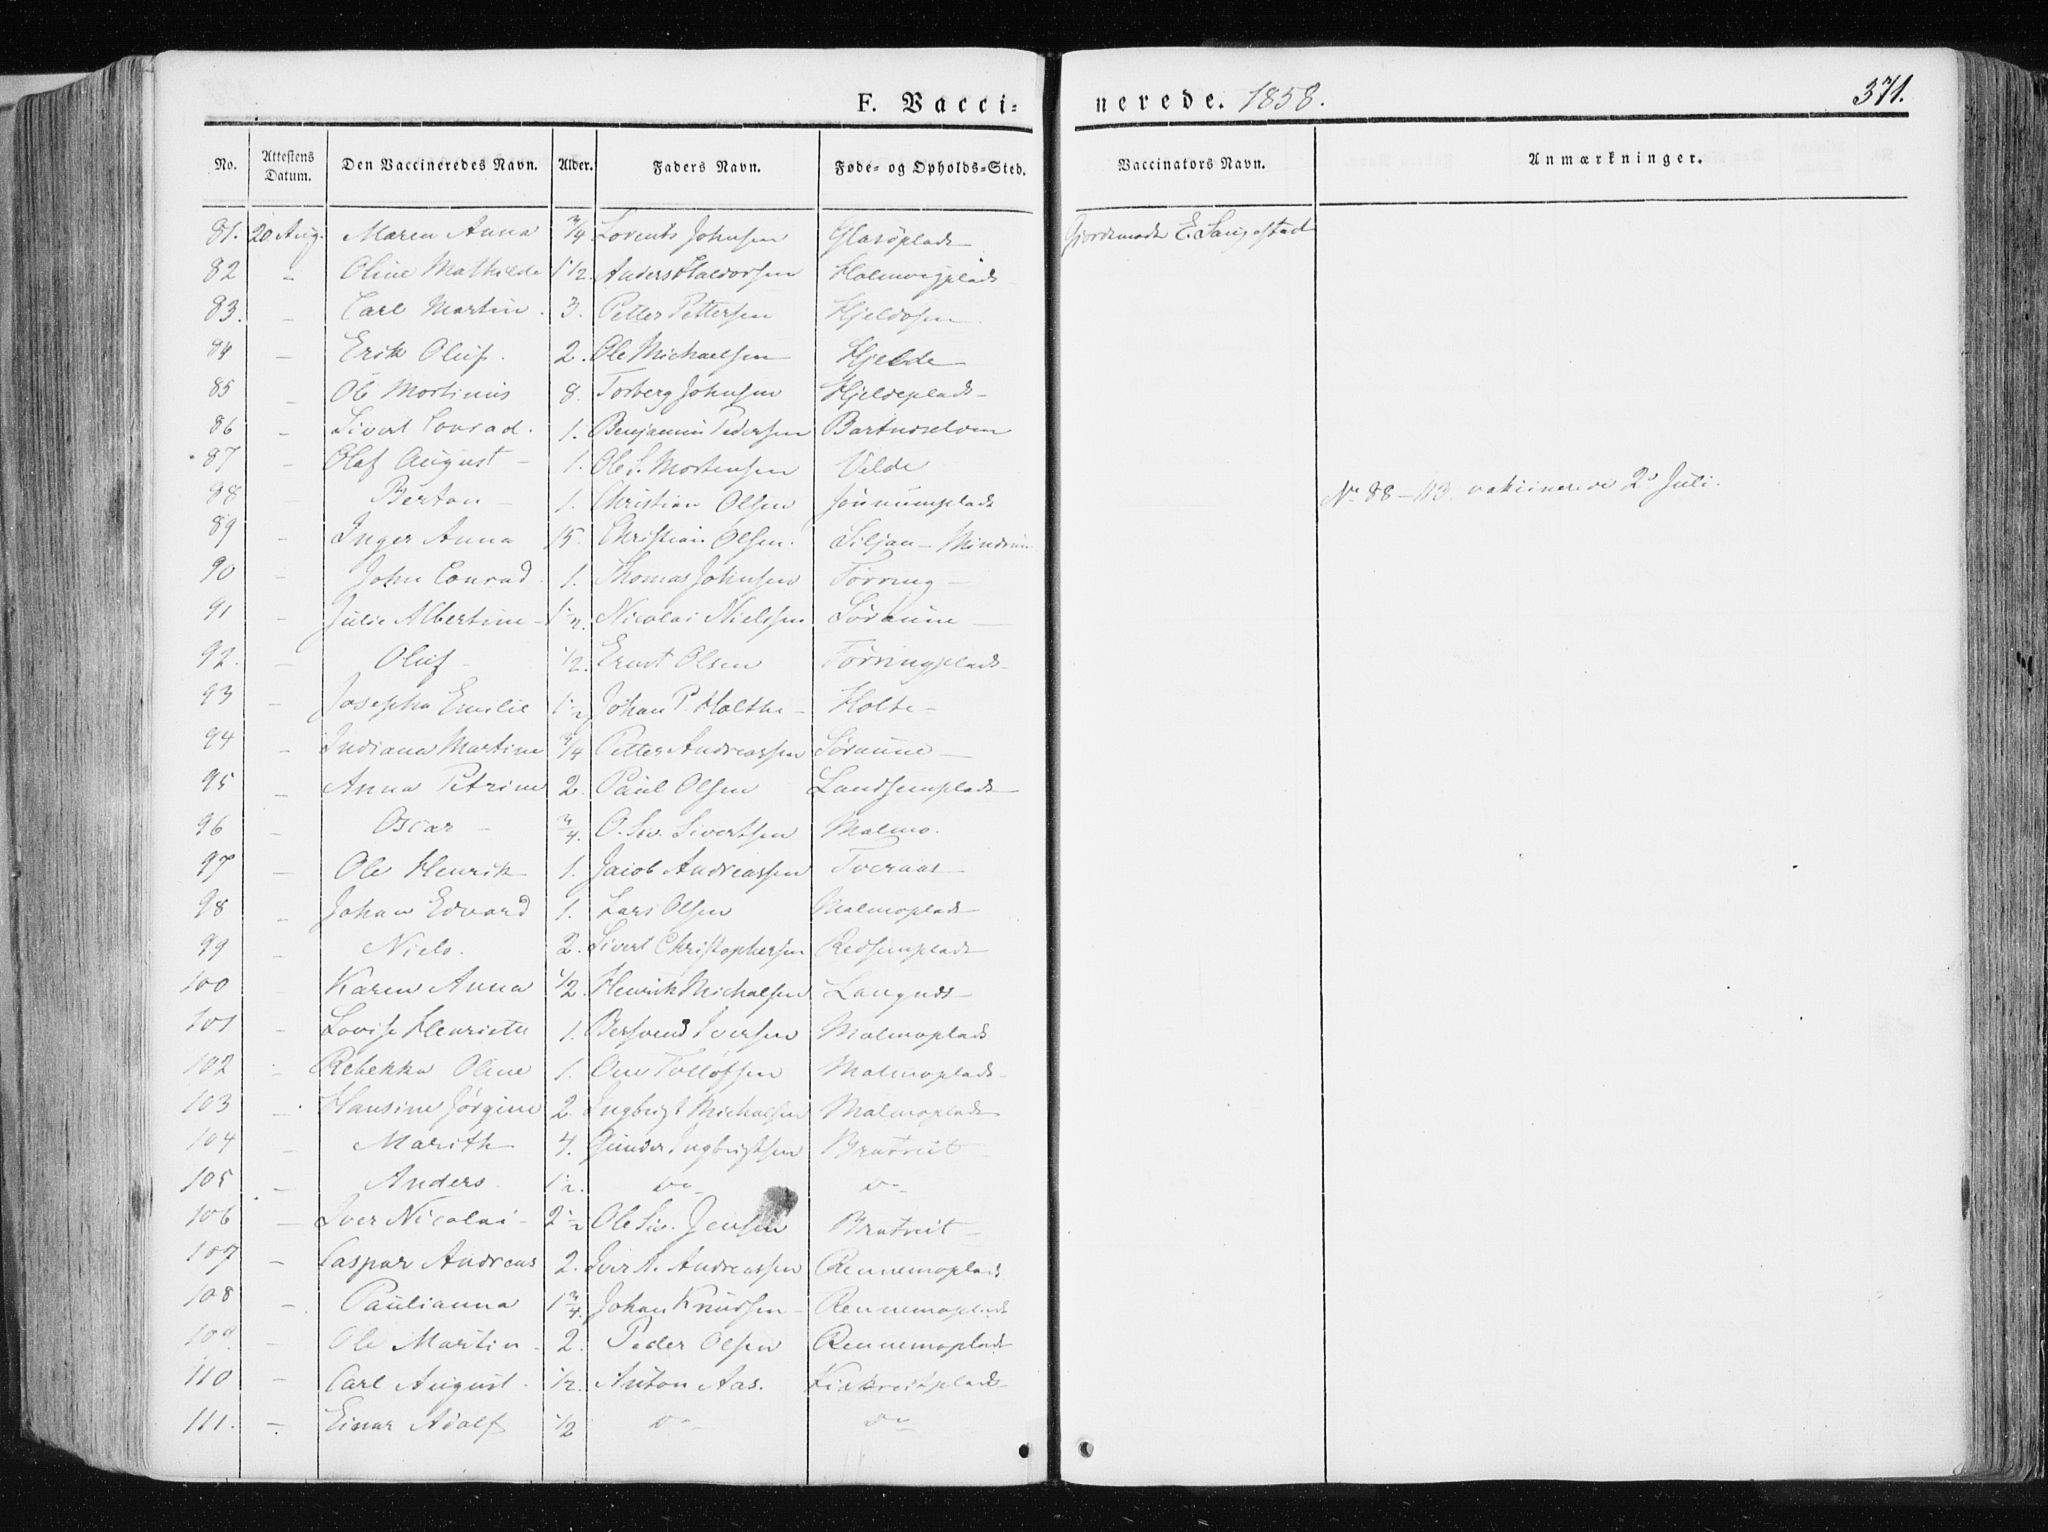 F. Vacci- nerede. 1858. 371.
No. Attestens Datum. Den Vaccineredes Navn. Alder. Faders Navn. Føde- og Opholds-Sted. Vaccinators Navn. Anmærkninger.
81. 20 Aug. Maren Anna 3/4 Lorents Johnsen Glasöplads Gjordemoder E. Langstad
82 - Oline Mathilde 1 1/2 Anders Haldorsen Holmvegplads
83. - Carl Martin. 3. Petter Pettersen Hjeldosen
84 - Erik Oluf. 2. Ole Michaelsen Hjelde
85 - Ole Mortinus 8. Torberg Johnsen Hjeldeplads
86 - Sivert Conrad. 1. Benjamin Pedersen Bartnoselven
87 - Olaf August - 1. Ole S. Mortensen Velde
88 - Berton - 1. Christian Olsen
No 88 - 113. vakcinerede 2 Juli.
89 - Inger Anna 15. Christian Olsen. Siljan - Mindrum
90 - John Conrad. 1. Thomas Johnsen Förring -
91 - Julie Albertine - 1 1/2. Nicolai Nielssen Söraune
92. - Oluf - 1/2. Ernst Olsen Förringplads
93 - Josepha Emilie 1 1/2 Johan P. Holthe - Holte -
94 - Indiana Martine 3/4 Petter Andreassen Söraune
95 - Anna Petrine 2. Paul Olsen Landsemplads
96 - Oscar - 3/4. O. Siv. Sivertsen Malmo.
97 - Ole Henrik 1. Jacob Andreassen Tveraas
98 - Johan Edvard 1. Lars Olsen Malmoplads
99 - Niels. 2. Sivert Christophersen Redsemplads
100 - Karen Anna 1/2. Henrik Michaelsen Langnes
101 - Lovise Henriette 1. Bersvend Iversen Malmoplads
102 - Rebekka Oline 1. Ole Tollofsen Malmoplads
103 - Hansine Jörgine 2. Ingbrigt Michaelsen Malmoplads
104 - Marith 4. Gunder Ingbrigtsen Bratreit
105 - Anders. 1 1/2. do do
106 - Iver Nicolai - 2 1/2 Ole Siv. Jensen Bratreit -
107 - Caspar Andreas 2. Iver A. Andreassen Rennemoplads
108 - Paulianna 1 3/4. Johan Knudsen - Rennemoplads
109. - Ole Martin - 2. Peder Olsen Rennemoplads
110 - Carl August. 1/2. Anton Aas. Kirkreitplads
111. - Einar Adolf 1/2 do do